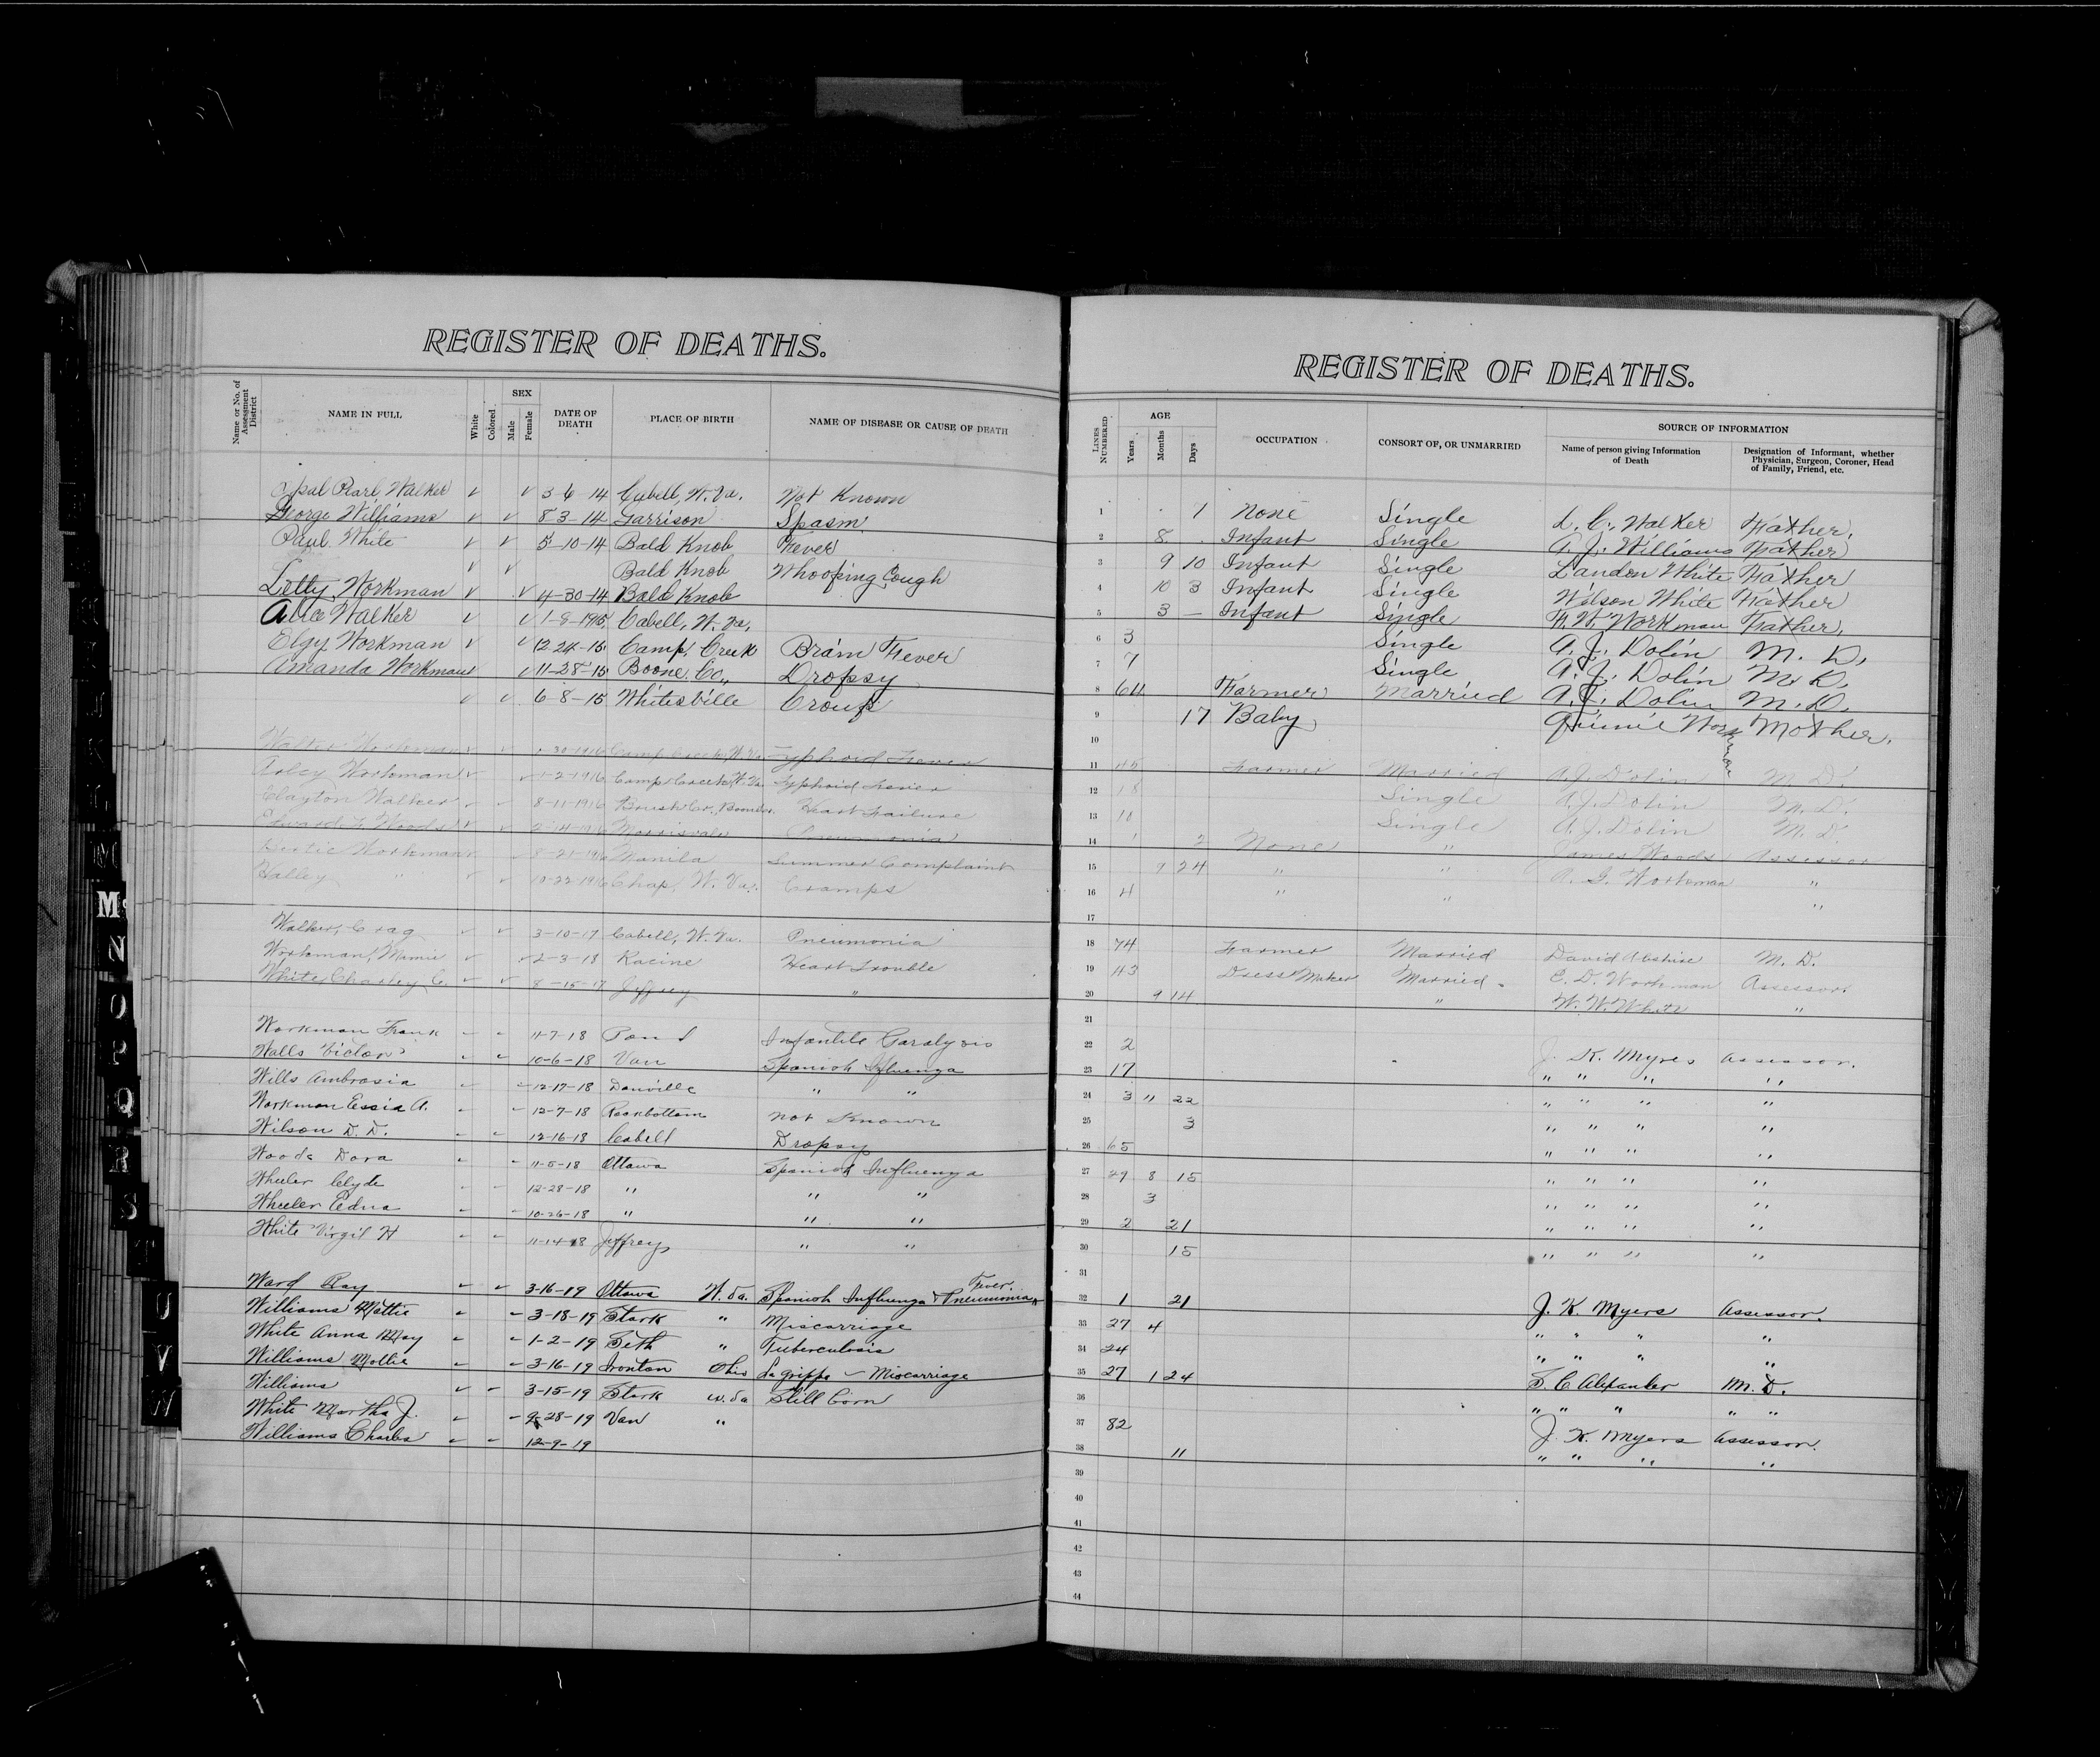 REGISTER OF DEATHS.
Name or No. of Assessment District
NAME IN FULL
White
Colored
SEX
Male
Female
DATE OF DEATH
PLACE OF BIRTH
NAME OF DISEASE OR CAUSE OF DEATH
Opal Pearl Walker ✓ ✓ 3-6-14 Cabell, W. Va. Not Known
George Williams ✓ ✓ 8-3-14 Garrison Spasm
Paul White ✓ ✓ 5-10-14 Bald Knob Fever
✓ ✓ Bald Knob Whooping Cough
Letty Workman ✓ ✓ 4-30-14 Bald Knob
Alice Walker ✓ ✓ 1-8-1915 Cabell, W. Va.
Elgy Workman ✓ ✓ 12-24-15 Camp Creek Brain Fever
Amanda Workman ✓ ✓ 11-28-15 Boone Co., Dropsy
✓ ✓ 6-8-15 Whitesville Croup
Walter Workman ✓ ✓ 30-1916 Camp Creek, W. Va. Typhoid Fever
Workman ✓ ✓ 1-2-1916 Camp Creek, W. Va. Typhoid Fever
Clayton Walker ✓ ✓ 8-11-1916 Brush Cr., Boone Co. Heart Failure
Edward Woods ✓ ✓ Morrisvale Pneumonia
Workman ✓ ✓ 8-21-1916 Manila Summer Complaint
Halley " ✓ ✓ 10-22-1916 Chap, W. Va. Cramps
Walker, Crag ✓ ✓ 3-10-17 Cabell, W. Va. Pneumonia
Workman, Mamie ✓ ✓ 2-3-18 Racine Heart Trouble
White, Charley C. ✓ ✓ 8-15-17 Jeffrey "
Workman Frank ✓ ✓ 11-7-18 Pond Infantile Paralysis
Walls Victor ✓ ✓ 10-6-18 Van Spanish Influenza
Wills Ambrosia ✓ ✓ 12-17-18 Danville " "
Workman Essie A. ✓ ✓ 12-7-18 Rockbottom not Known
Wilson D. D. ✓ ✓ 12-16-18 Cabell Dropsy
Woods Dora ✓ ✓ 11-5-18 Ottawa Spanish Influenza
Wheeler Clyde ✓ ✓ 12-28-18 " " "
Wheeler Edna ✓ ✓ 10-26-18 " " "
White Virgil H ✓ ✓ 11-14-18 Jeffrey " "
Ward Ray ✓ ✓ 3-16-19 Ottawa W. Va. Spanish Influenza & Pneumonia Fever
Williams Mattie ✓ ✓ 3-18-19 Stark " Miscarriage
White Anna May ✓ ✓ 1-2-19 Seth " Tuberculosis
Williams Mollie ✓ ✓ 3-16-19 Ironton Ohio La grippe - Miscarriage
Williams ✓ ✓ 3-15-19 Stark W. Va Still born
White Martha J. ✓ ✓ 9-28-19 Van "
Williams Charles ✓ ✓ 12-9-19
REGISTER OF DEATHS.
LINES NUMBERED
AGE
Years
Months
Days
OCCUPATION
CONSORT OF, OR UNMARRIED
SOURCE OF INFORMATION
Name of person giving Information of Death
Designation of Informant, whether Physician, Surgeon, Coroner, Head of Family, Friend, etc.
1 7 None Single L. C. Walker Father.
2 8 Infant Single A. J. Williams Father
3 9 10 Infant Single Landon White Father
4 10 3 Infant Single Wilson White Father
5 3 — Infant Single Workman Father.
6 3 Single A. J. Dolin M. D.
7 7 Single A. J. Dolin M. D.
8 64 Farmer Married A. J. Dolin M. D.
9 17 Baby Workman Mother.
10
11 45 Farmer Married A. J. Dolin M. D.
12 18 Single A. J. Dolin M. D.
13 18 Single A. J. Dolin M. D.
14 1 2 None " James Woods Assessor
15 9 24 " " Workman "
16 4 " " "
17
18 74 Farmer Married David Abshire M. D.
19 43 Dress Maker Married E. D. Workman Assessor.
20 9 14 " W. W. White "
21
22 2 J. K. Myres Assessor.
23 17 " " " "
24 3 11 22 " " " "
25 3 " " " "
26 65 " " " "
27 29 8 15 " " " "
28 3 " " " "
29 2 21 " " " "
30 15 " " " "
31
32 1 21 J. K. Myers Assessor.
33 27 4 " " " "
34 24 " " " "
35 27 1 24 S. C. Alexander M. D.
36 " " " " "
37 82 J. K. Myers Assessor.
38 11 " " " "
39
40
41
42
43
44
M
N
O
P
Q
R
S
T
U
V
W